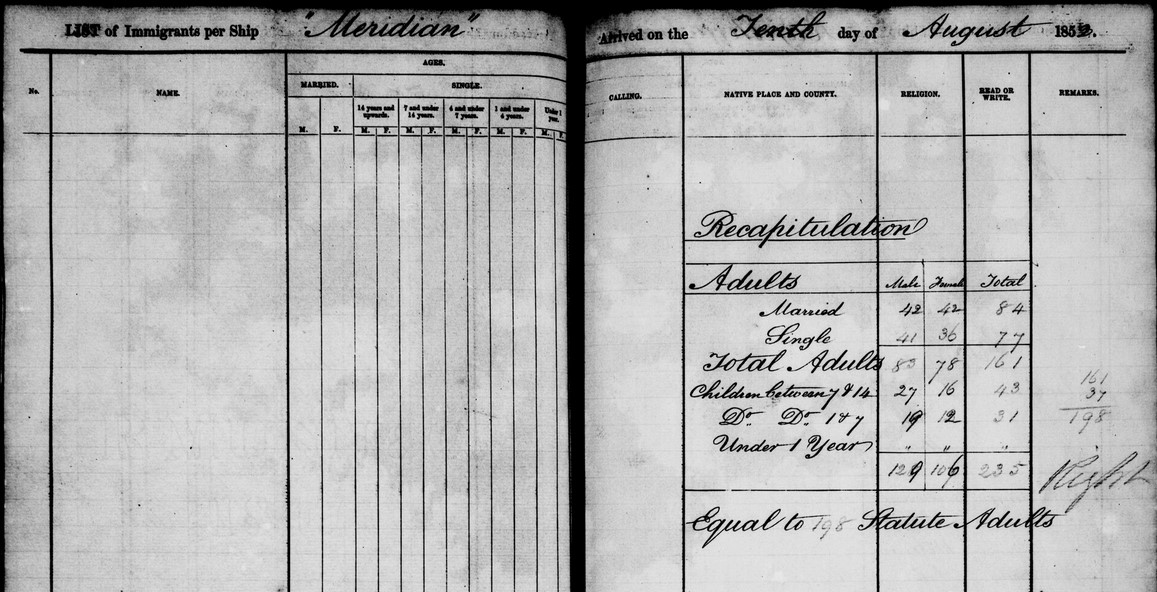 LIST of Immigrants per Ship "Meridian"
No.
NAME.
AGES.
MARRIED. SINGLE.
14 years and upwards. 7 and under 14 years. 4 and under 7 years. 1 and under 4 years. Under 1 year.
M. F. M. F. M. F. M. F. M. F. M. F.
Arrived on the Tenth day of August 185
CALLING. NATIVE PLACE AND COUNTY. RELIGION. READ OR WRITE. REMARKS.
Recapitulation
Adults Male Female Total
Married 42 42 84
Single 41 36 77
Total Adults 83 78 161
Children between 7 & 14 27 16 43
Do. Do. 1 & 7 19 12 31
Under 1 Year " " "
129 106 235
161
37
198
Right
Equal to 198 Statute Adults